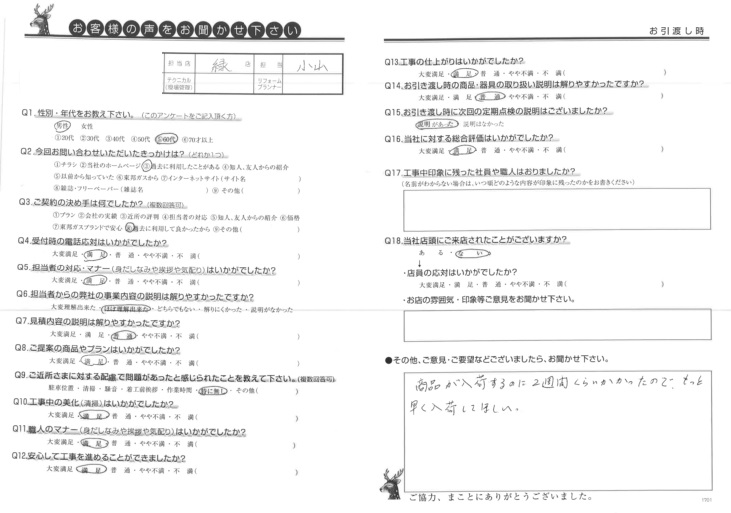 お客様の声をお聞かせ下さい
担当店 緑 店 担当 小山
テクニカル(設備管理) リフォームプランナー
Q1.性別・年代をお教え下さい。(このアンケートをご記入頂く方)
男性 女性
①20代 ②30代 ③40代 ④50代 ⑤60代 ⑥70才以上
Q2.今回お問い合わせいただいたきっかけは?(どれか1つ)
①チラシ ②当社のホームページ ③過去に利用したことがある ④知人、友人からの紹介
⑤以前から知っていた ⑥東邦ガスから ⑦インターネットサイト(サイト名 )
⑧雑誌・フリーペーパー(雑誌名 ) ⑨その他( )
Q3.ご契約の決め手は何でしたか?(複数回答可)
①プラン ②会社の実績 ③近所の評判 ④担当者の対応 ⑤知人、友人からの紹介 ⑥価格
⑦東邦ガスブランドで安心 ⑧過去に利用して良かったから ⑨その他( )
Q4.受付時の電話応対はいかがでしたか?
大変満足・満足・普通・やや不満・不満( )
Q5.担当者の対応・マナー(身だしなみや挨拶や気配り)はいかがでしたか?
大変満足・満足・普通・やや不満・不満( )
Q6.担当者からの弊社の事業内容の説明は解りやすかったですか?
大変理解出来た・ほぼ理解出来た・どちらでもない・解りにくかった・説明がなかった
Q7.見積内容の説明は解りやすかったですか?
大変満足・満足・普通・やや不満・不満( )
Q8.ご提案の商品やプランはいかがでしたか?
大変満足・満足・普通・やや不満・不満( )
Q9.ご近所さまに対する配慮で問題があったと感じられたことを教えて下さい。(複数回答可)
駐車位置・清掃・騒音・着工前挨拶・作業時間・特に無し・その他( )
Q10.工事中の美化(清掃)はいかがでしたか?
大変満足・満足・普通・やや不満・不満( )
Q11.職人のマナー(身だしなみや挨拶や気配り)はいかがでしたか?
大変満足・満足・普通・やや不満・不満( )
Q12.安心して工事を進めることができましたか?
大変満足・満足・普通・やや不満・不満( )
お引渡し時
Q13.工事の仕上がりはいかがでしたか?
大変満足・満足・普通・やや不満・不満( )
Q14.お引き渡し時の商品・器具の取り扱い説明は解りやすかったですか?
大変満足・満足・普通・やや不満・不満( )
Q15.お引き渡し時に次回の定期点検の説明はございましたか?
説明があった・説明はなかった
Q16.当社に対する総合評価はいかがでしたか?
大変満足・満足・普通・やや不満・不満( )
Q17.工事中印象に残った社員や職人はおりましたか?
(名前がわからない場合は、いつ頃どのような内容が印象に残ったのかをお書きください)
Q18.当社店頭にご来店されたことがございますか?
ある・ない
↓
・店員の応対はいかがでしたか?
大変満足・満足・普通・やや不満・不満( )
・お店の雰囲気・印象等ご意見をお聞かせ下さい。
●その他、ご意見・ご要望などございましたら、お聞かせ下さい。
商品が入荷するのに2週間くらいかかったので、もっと
早く入荷してほしい。
ご協力、まことにありがとうございました。